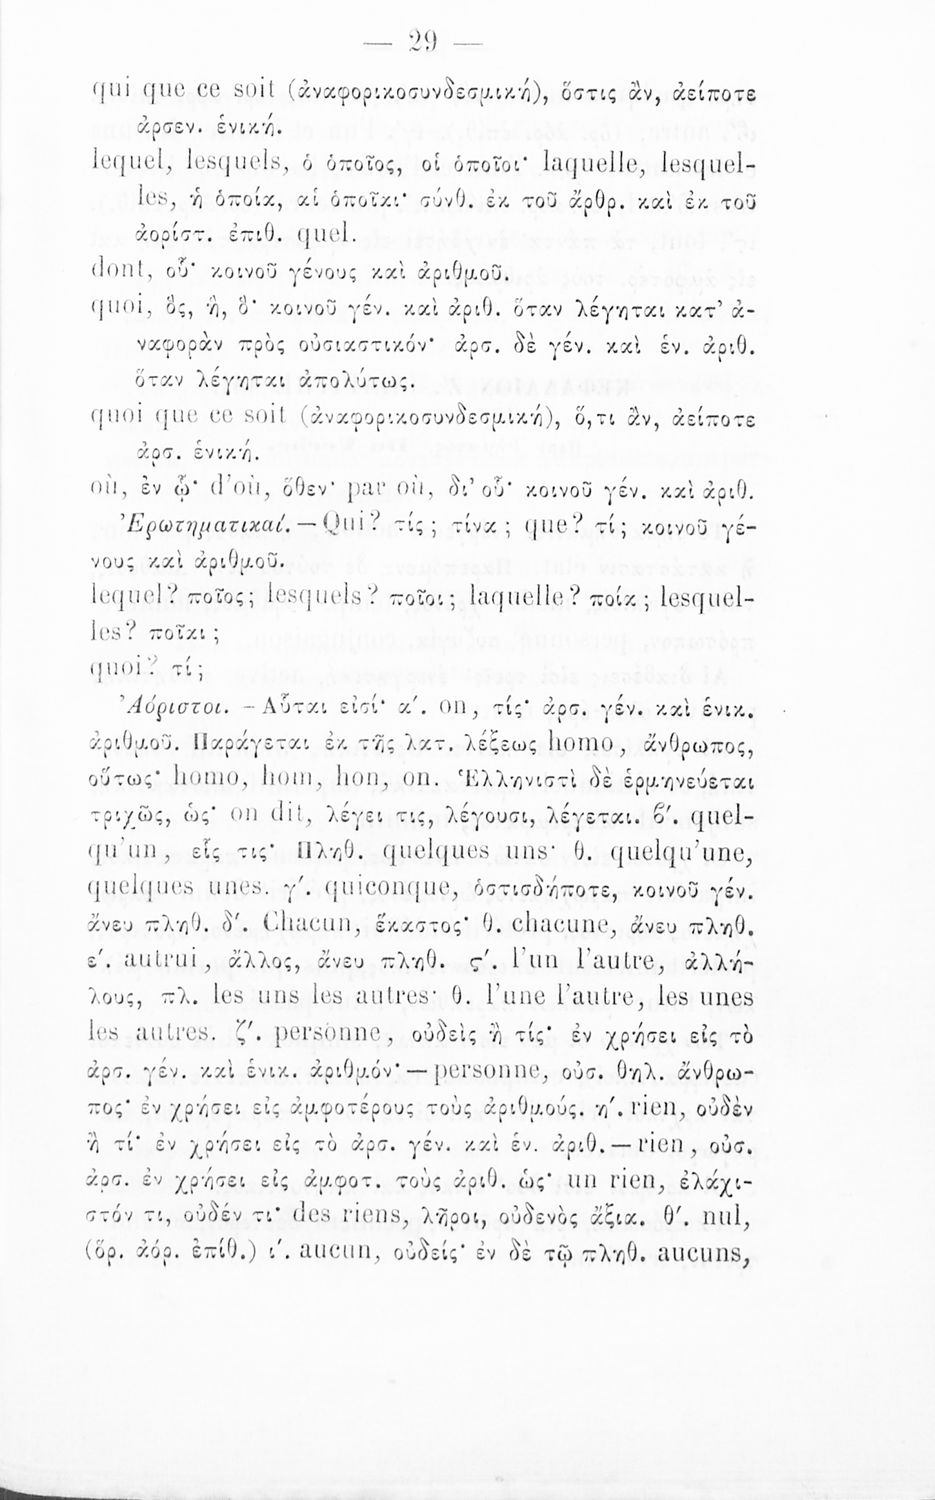 — 29 —
qui que ce soit (ἀναφορικοσυνδεσμική), ὅστις ἂν, ἀείποτε
ἀρσεν. ἑνική.
lequel, lesquels, ὁ ὁποῖος, οἱ ὁποῖοι· laquelle, lesquel-
les, ἡ ὁποία, αἱ ὁποῖαι· σύνθ. ἐκ τοῦ ἄρθρ. καὶ ἐκ τοῦ
ἀορίστ. ἐπιθ. quel.
dont, οὗ· κοινοῦ γένους καὶ ἀριθμοῦ.
quoi, ὃς, ἣ, ὃ· κοινοῦ γέν. καὶ ἀριθ. ὅταν λέγηται κατ’ ἀ-
ναφορὰν πρὸς οὐσιαστικόν· ἀρσ. δὲ γέν. καὶ ἑν. ἀριθ.
ὅταν λέγηται ἀπολύτως.
quoi que ce soit (ἀναφορικοσυνδεσμική), ὅ,τι ἂν, ἀείποτε
ἀρσ. ἑνική.
où, ἐν ᾧ· d’où, ὅθεν· par où, δι’ οὗ· κοινοῦ γέν. καὶ ἀριθ.
Ἐρωτηματικαί. — Qui? τίς; τίνα; que? τί; κοινοῦ γέ-
νους καὶ ἀριθμοῦ.
lequel? ποῖος; lesquels? ποῖοι; laquelle? ποία; lesquel-
les? ποῖαι;
quoi? τί;
Ἀόριστοι. — Αὗται εἰσί· α΄. on, τίς· ἀρσ. γέν. καὶ ἑνικ.
ἀριθμοῦ. Παράγεται ἐκ τῆς λατ. λέξεως homo, ἄνθρωπος,
οὕτως· homo, hom, hon, on. Ἑλληνιστὶ δὲ ἑρμηνεύεται
τριχῶς, ὡς· on dit, λέγει τις, λέγουσι, λέγεται. β΄. quel-
qu’un, εἷς τις· Πληθ. quelques uns· θ. quelqu’une,
quelques unes. γ΄. quiconque, ὁστισδήποτε, κοινοῦ γέν.
ἄνευ πληθ. δ΄. Chacun, ἕκαστος· θ. chacune, ἄνευ πληθ.
ε΄. autrui, ἄλλος, ἄνευ πληθ. ς΄. l’un l’autre, ἀλλή-
λους, πλ. les uns les autres· θ. l’une l’autre, les unes
les autres. ζ΄. personne, οὐδεὶς ἢ τίς· ἐν χρήσει εἰς τὸ
ἀρσ. γέν. καὶ ἑνικ. ἀριθμόν· — personne, οὐσ. θηλ. ἄνθρω-
πος· ἐν χρήσει εἰς ἀμφοτέρους τοὺς ἀριθμούς. η΄. rien, οὐδὲν
ἢ τί· ἐν χρήσει εἰς τὸ ἀρσ. γέν. καὶ ἑν. ἀριθ. — rien, οὐσ.
ἀρσ. ἐν χρήσει εἰς ἀμφοτ. τοὺς ἀριθ. ὡς· un rien, ἐλάχι-
στόν τι, οὐδέν τι· des riens, λῆροι, οὐδενὸς ἄξια. θ΄. nul,
(ὅρ. ἀόρ. ἐπίθ.) ι΄. aucun, οὐδείς· ἐν δὲ τῷ πληθ. aucuns,